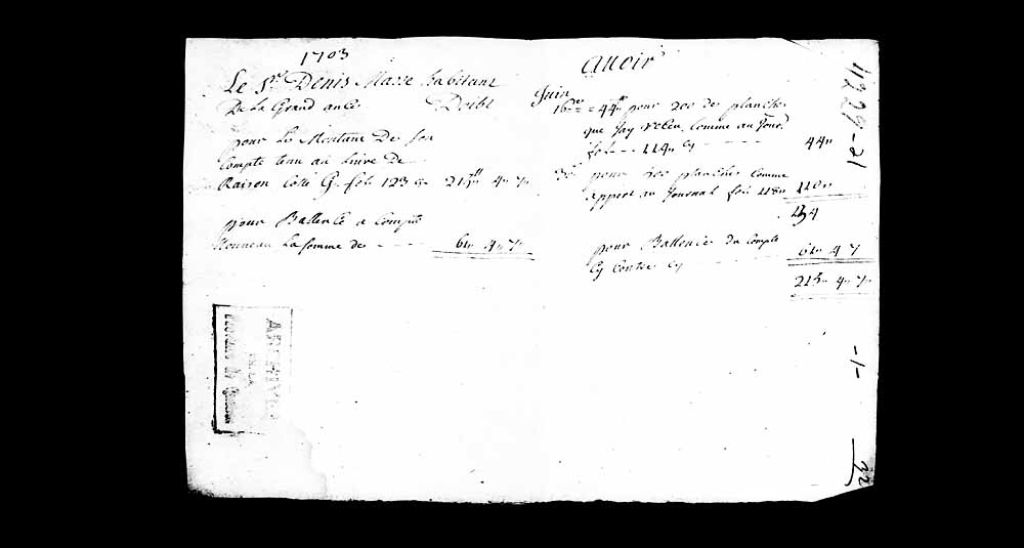 1703
Le Sr. Denis Masse habitant
De La Grand ance Doibt
pour Le Montant De son
Compte tenu au Livre De
Raison Coté G. fol. 123 215ᴸᴸ 4ʺ 7ʺ
pour Ballence a Compte
Nouveau La somme de - - - - 61ʺ 4ʺ 7ʺ
avoir
Juin
16me = 44ᴸᴸ pour 200 de planches
que Jay Receu Comme au Jour.
fol - - 114ʺ cy - - - - 44ʺ
pour planches Comme
Appert au Journal fol. 118ʺ 110ʺ
154
pour Ballence du Compte
Cy Contre cy 61ʺ 4 7
215ʺ 4ʺ 7ʺ
ARCHIVES
DE LA
-1-